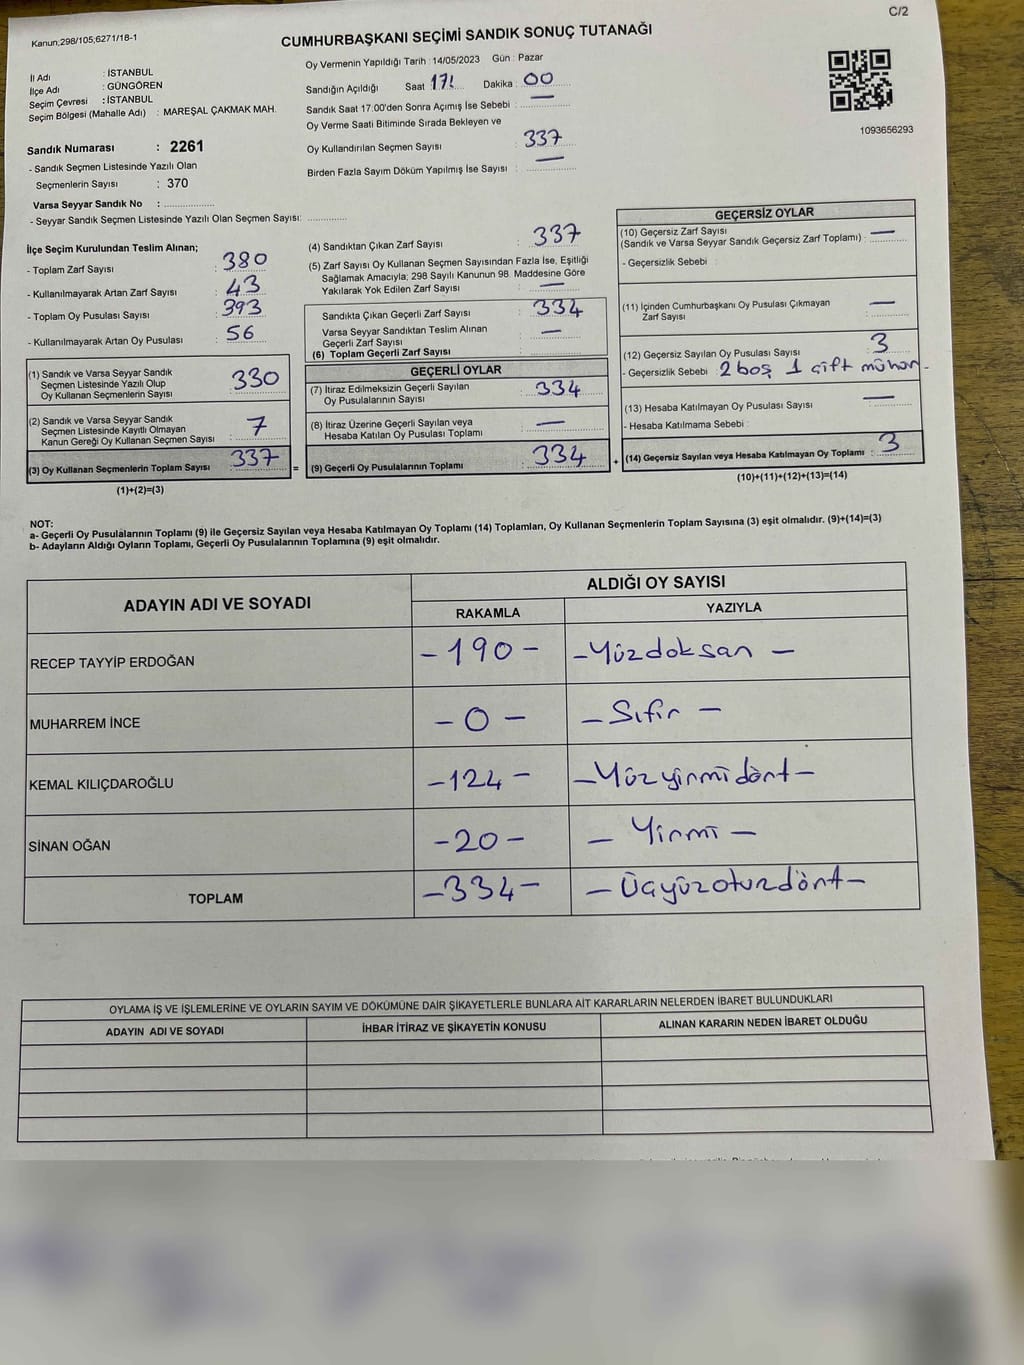 C/2
Kanun;298/105;6271/18-1
CUMHURBAŞKANI SEÇİMİ SANDIK SONUÇ TUTANAĞI
İl Adı : İSTANBUL
İlçe Adı : GÜNGÖREN
Seçim Çevresi : İSTANBUL
Seçim Bölgesi (Mahalle Adı) : MAREŞAL ÇAKMAK MAH.
Sandık Numarası : 2261
- Sandık Seçmen Listesinde Yazılı Olan
Seçmenlerin Sayısı : 370
Varsa Seyyar Sandık No : ....................
- Seyyar Sandık Seçmen Listesinde Yazılı Olan Seçmen Sayısı: ...............
Oy Vermenin Yapıldığı Tarih : 14/05/2023 Gün : Pazar
Sandığın Açıldığı Saat 17: Dakika : 00
Sandık Saat 17:00'den Sonra Açımış İse Sebebi : —
Oy Verme Saati Bitiminde Sırada Bekleyen ve
Oy Kullandırılan Seçmen Sayısı : 337
Birden Fazla Sayım Döküm Yapılmış İse Sayısı : —
1093656293
İlçe Seçim Kurulundan Teslim Alınan;
- Toplam Zarf Sayısı : 380
- Kullanılmayarak Artan Zarf Sayısı : 43
- Toplam Oy Pusulası Sayısı : 393
- Kullanılmayarak Artan Oy Pusulası : 56
(1) Sandık ve Varsa Seyyar Sandık
Seçmen Listesinde Yazılı Olup
Oy Kullanan Seçmenlerin Sayısı : 330
(2) Sandık ve Varsa Seyyar Sandık
Seçmen Listesinde Kayıtlı Olmayan
Kanun Gereği Oy Kullanan Seçmen Sayısı : 7
(3) Oy Kullanan Seçmenlerin Toplam Sayısı : 337 =
(1)+(2)=(3)
(4) Sandıktan Çıkan Zarf Sayısı : 337
(5) Zarf Sayısı Oy Kullanan Seçmen Sayısından Fazla İse, Eşitliği
Sağlamak Amacıyla; 298 Sayılı Kanunun 98. Maddesine Göre
Yakılarak Yok Edilen Zarf Sayısı : —
Sandıkta Çıkan Geçerli Zarf Sayısı : 334
Varsa Seyyar Sandıktan Teslim Alınan
Geçerli Zarf Sayısı : —
(6) Toplam Geçerli Zarf Sayısı : ...............
GEÇERLİ OYLAR
(7) İtiraz Edilmeksizin Geçerli Sayılan
Oy Pusulalarının Sayısı : 334
(8) İtiraz Üzerine Geçerli Sayılan veya
Hesaba Katılan Oy Pusulası Toplamı : —
(9) Geçerli Oy Pusulalarının Toplamı : 334 +
GEÇERSİZ OYLAR
(10) Geçersiz Zarf Sayısı
(Sandık ve Varsa Seyyar Sandık Geçersiz Zarf Toplamı) : —
- Geçersizlik Sebebi :
(11) İçinden Cumhurbaşkanı Oy Pusulası Çıkmayan
Zarf Sayısı : —
(12) Geçersiz Sayılan Oy Pusulası Sayısı : 3
- Geçersizlik Sebebi 2 boş 1 çift mühür -
(13) Hesaba Katılmayan Oy Pusulası Sayısı : —
- Hesaba Katılmama Sebebi :
(14) Geçersiz Sayılan veya Hesaba Katılmayan Oy Toplamı : 3
(10)+(11)+(12)+(13)=(14)
NOT:
a- Geçerli Oy Pusulalarının Toplamı (9) ile Geçersiz Sayılan veya Hesaba Katılmayan Oy Toplamı (14) Toplamları, Oy Kullanan Seçmenlerin Toplam Sayısına (3) eşit olmalıdır. (9)+(14)=(3)
b- Adayların Aldığı Oyların Toplamı, Geçerli Oy Pusulalarının Toplamına (9) eşit olmalıdır.
ADAYIN ADI VE SOYADI ALDIĞI OY SAYISI
RAKAMLA YAZIYLA
RECEP TAYYİP ERDOĞAN - 190 - - Yüzdoksan -
MUHARREM İNCE - 0 - - Sıfır -
KEMAL KILIÇDAROĞLU - 124 - - Yüzyirmidört -
SİNAN OĞAN - 20 - - Yirmi -
TOPLAM - 334 - - Üçyüzotuzdört -
OYLAMA İŞ VE İŞLEMLERİNE VE OYLARIN SAYIM VE DÖKÜMÜNE DAİR ŞİKAYETLERLE BUNLARA AİT KARARLARIN NELERDEN İBARET BULUNDUKLARI
ADAYIN ADI VE SOYADI İHBAR İTİRAZ VE ŞİKAYETİN KONUSU ALINAN KARARIN NEDEN İBARET OLDUĞU